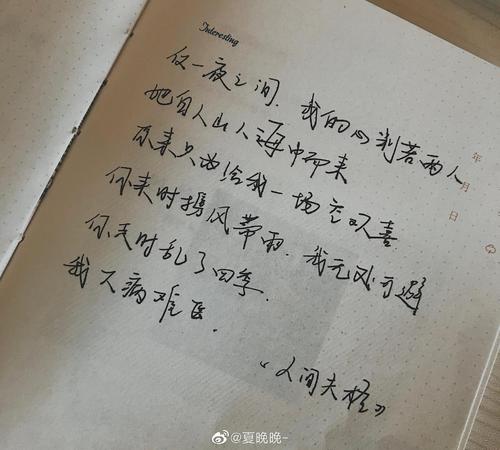 Interesting
仅一夜之间，我的心判若两人
她自人山人海中而来
原来只为给我一场空欢喜
你来时携风带雨，我无处可避
你走时乱了四季，
我久病难医。
《人间失格》
年
月
日
@夏晚晚-